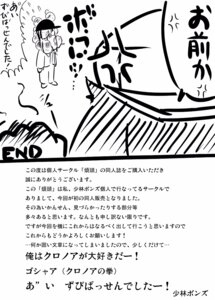 お前か
ボコ
あ”い
ずびばっせんでした！
END
この度は個人サークル「煩頭」の同人誌をご購入いただき
誠にありがとうございます。
この「煩頭」は私、少林ボンズ個人で行なってるサークルで
ありまして、今回が初の同人販売となりました。
その為いかんせん、見づらかったりする部分等
多々あると思います。なんとも申し訳ない限りです。
ですが今回を機にこれからはなるべく出して行こうと思いますので
これからもどうかよろしくお願いします！
…何か固い文章になってしまいましたので、少しくだけて…
俺はクロノアが大好きだー！
ゴシャア（クロノアの拳）
あ”い　ずびばっせんでしたー！
少林ボンズ